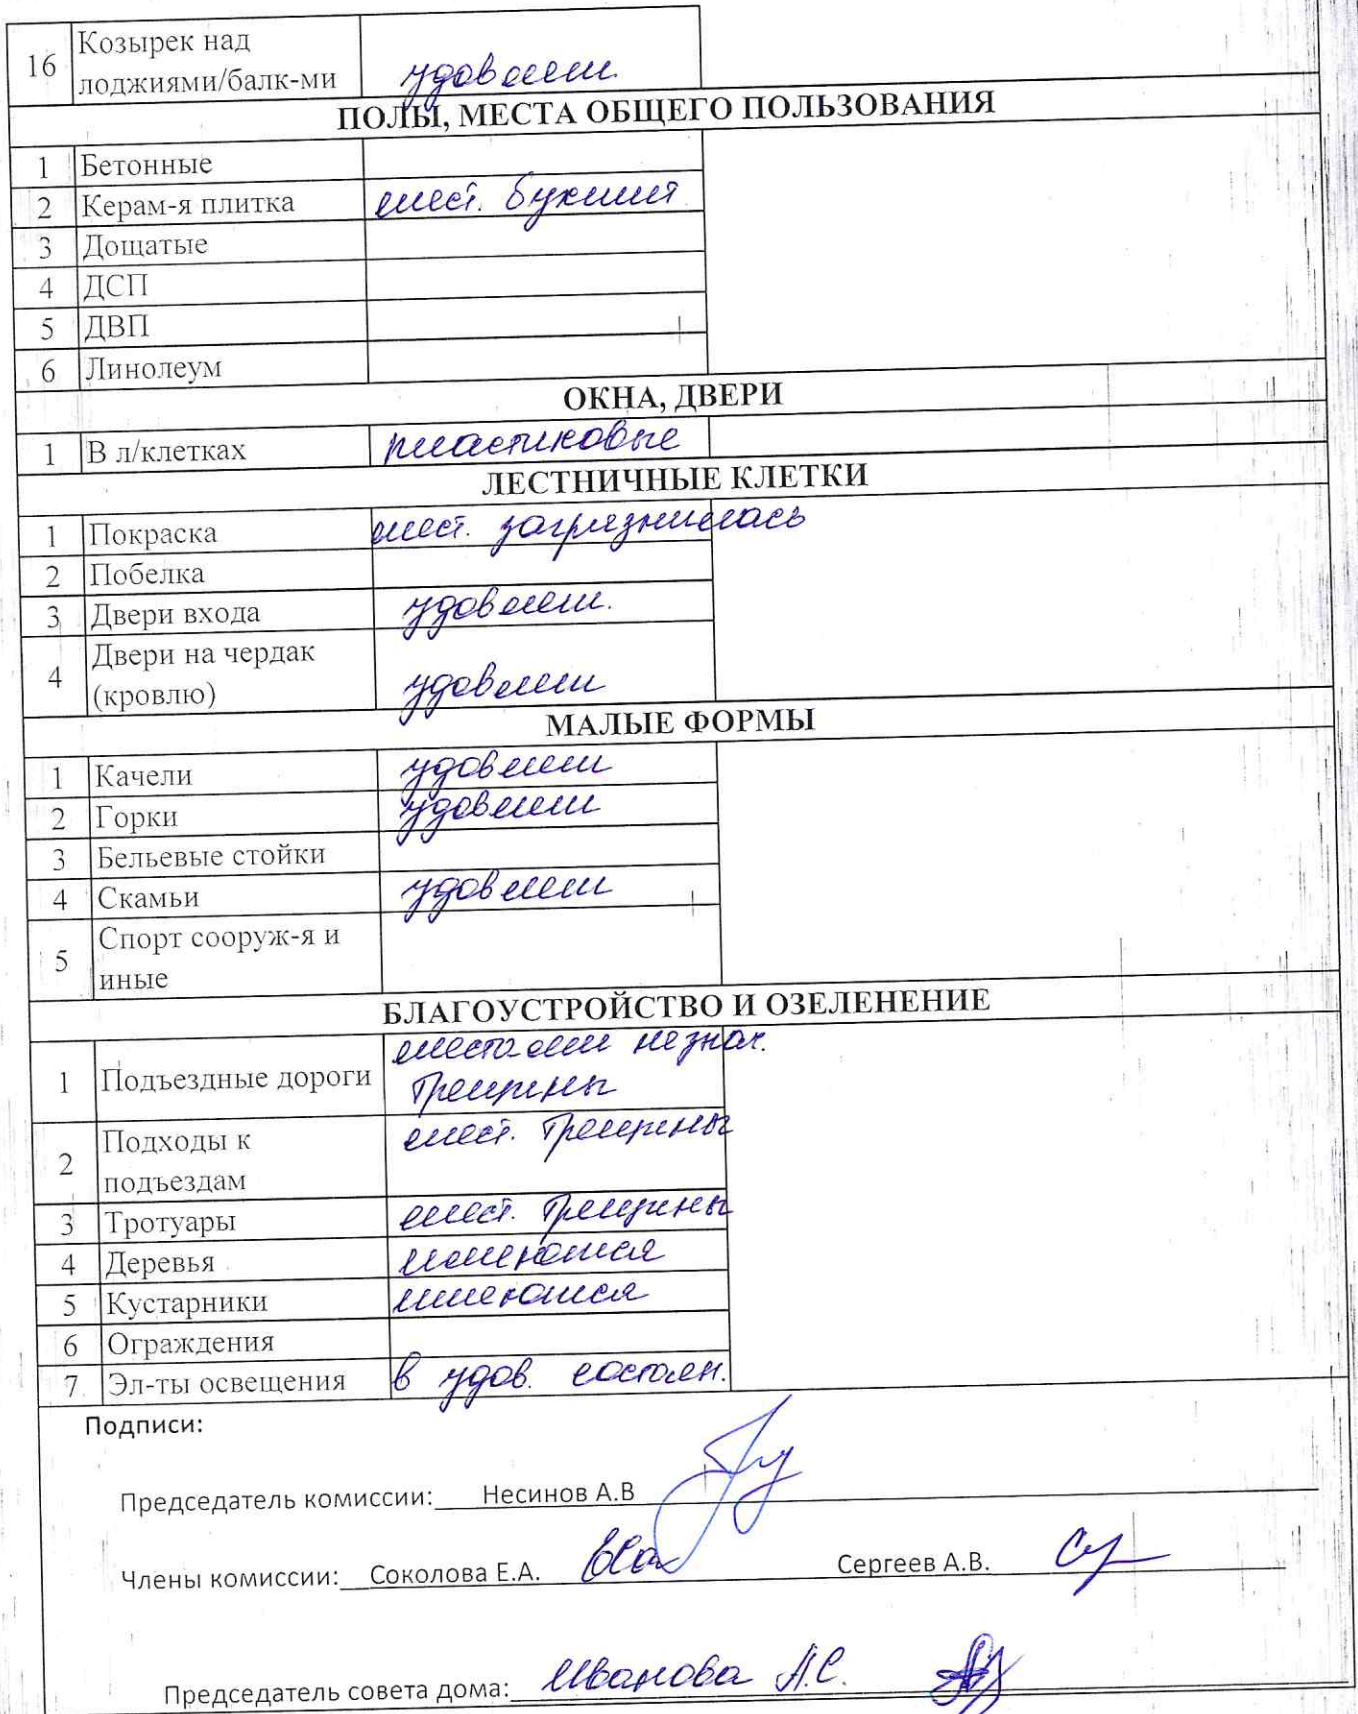 16 Козырек над
лоджиями/балк-ми удовлет.
ПОЛЫ, МЕСТА ОБЩЕГО ПОЛЬЗОВАНИЯ
1 Бетонные
2 Керам-я плитка мест.
3 Дощатые
4 ДСП
5 ДВП
6 Линолеум
ОКНА, ДВЕРИ
1 В л/клетках пластиковые
ЛЕСТНИЧНЫЕ КЛЕТКИ
1 Покраска мест. загрязнилась
2 Побелка
3 Двери входа удовлет.
4 Двери на чердак
(кровлю) удовлет
МАЛЫЕ ФОРМЫ
1 Качели удовлет
2 Горки удовлет
3 Бельевые стойки
4 Скамьи удовлет
5 Спорт сооруж-я и
иные
БЛАГОУСТРОЙСТВО И ОЗЕЛЕНЕНИЕ
местами незнач.
1 Подъездные дороги трещины
2 Подходы к мест. трещины
подъездам
3 Тротуары мест. трещины
4 Деревья имеются
5 Кустарники имеются
6 Ограждения
7 Эл-ты освещения в удов. состоян.
Подписи:
Председатель комиссии: Несинов А.В
Члены комиссии: Соколова Е.А. Сергеев А.В.
Председатель совета дома: Иванова А.С.